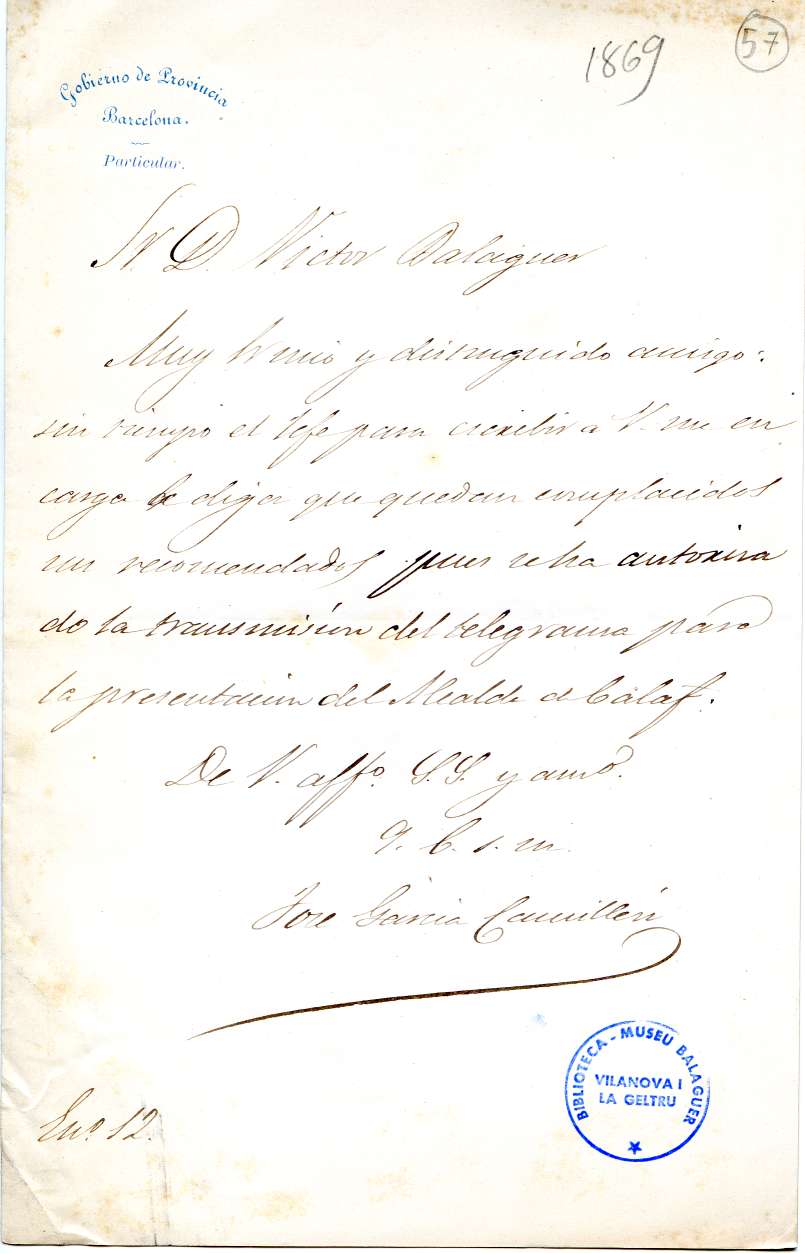 1869
57
Gobierno de Provincia
Barcelona.
Particular.
Sr. D. Victor Balaguer
Muy Sr mio y distinguido amigo:
sin tiempo el Jefe para escribir a V. me en
carga le diga que quedan complacidos
sus recomendados pues se ha autoriza
do la transmisión del telegrama para
la presentacion del Alcalde de Calaf.
De V. affo. S.S. y amo.
q. b. s. m.
Jose Garcia
Eno. 12.
BIBLIOTECA - MUSEU BALAGUER
VILANOVA I
LA GELTRU